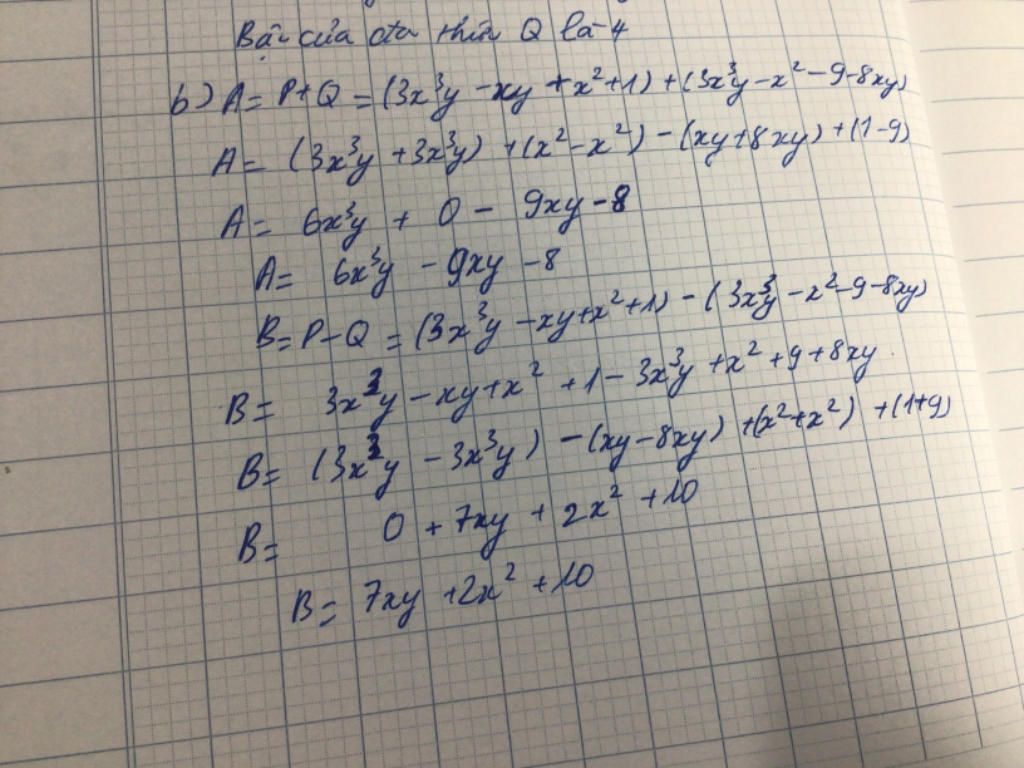 Bậc của đa thức Q là 4
b) A = P+Q = (3x³y - xy + x² + 1) + (3x³y - x² - 9 - 8xy)
A = (3x³y + 3x³y) + (x² - x²) - (xy + 8xy) + (1 - 9)
A = 6x³y + 0 - 9xy - 8
A = 6x³y - 9xy - 8
B = P - Q = (3x³y - xy + x² + 1) - (3x³y - x² - 9 - 8xy)
B = 3x³y - xy + x² + 1 - 3x³y + x² + 9 + 8xy
B = (3x³y - 3x³y) - (xy - 8xy) + (x² + x²) + (1 + 9)
B = 0 + 7xy + 2x² + 10
B = 7xy + 2x² + 10